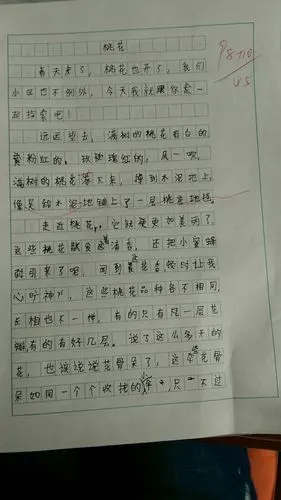 桃花
春天来了，桃花也开了，我们
小区也不例外，今天我就跟你一
起探索吧！
远远望去，满树的桃花有白的
粉红的、玫瑰红的，风一吹，
满树的桃花落下来，掉到水泥地上，
像是给水泥地铺上了一层桃花地毯。
走近桃花，它就更更加美丽了，
这些桃花散发着清香，还把小蜜蜂
吸引来了呢，闻到这花香，顿时让我
心旷神，这些桃花品种各不相同，
长相也不一样，有的只有几一层花
瓣，有的有好几层。说了这么多开的
花，也该说说花骨朵了，这些花骨
朵如同一个个收拢的，只不过